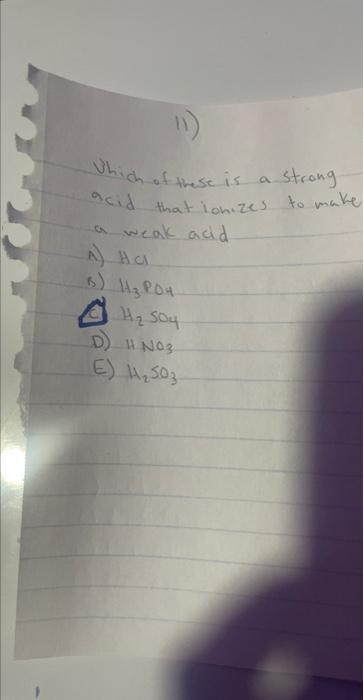 11)
Which of these is a strong
acid that ionizes to make
a weak acid
A) HCl
B) H3PO4
C H2SO4
D) HNO3
E) H2SO3